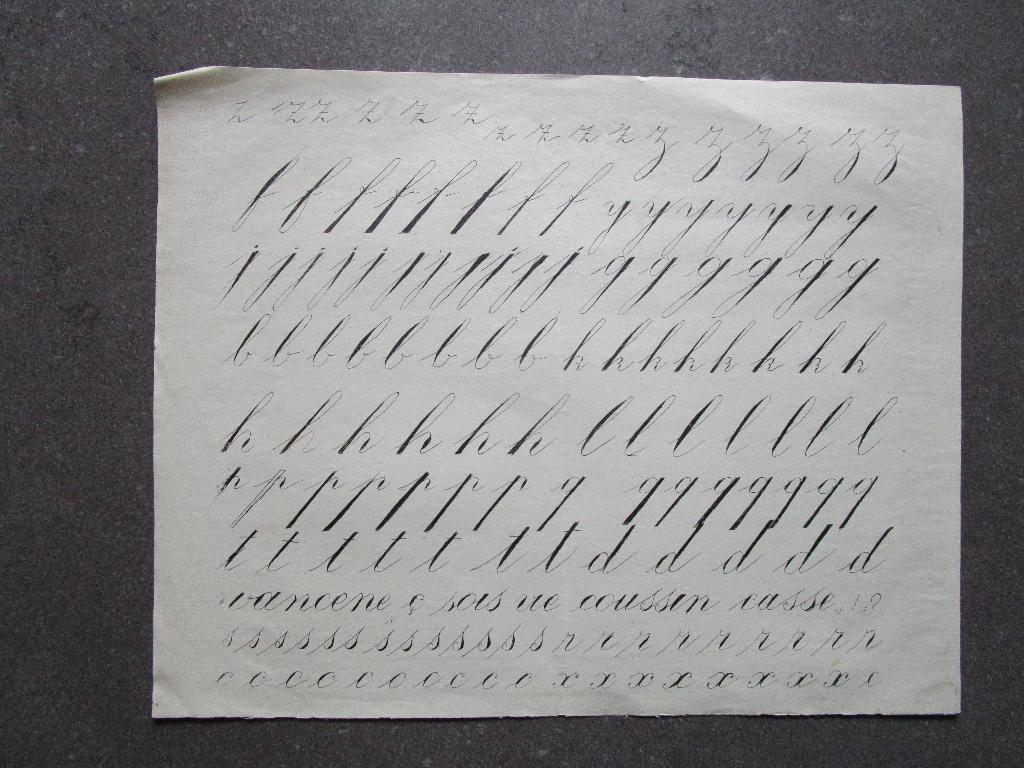 z z z z z z z z z z z z z z z z z
f f f f f f f f f y y y y y y y
j j j j j j j j j j j j j g g g g g g g
b b b b b b b b b k k k k k k k k k
h h h h h h l l l l l l l
p p p p p p p p q q q q q q q q
t t t t t t t d d d d d d
vancene ç sois vie coussin casse, ! ?
s s s s s s s s s s s s s s r r r r r r r r r r
c c c c c c c c c c c x x x x x x x x c